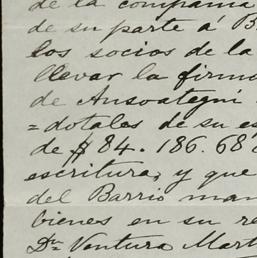 de la compañia
de su parte á B
los socios de la
llevar la firma
de Ansoategui
=dotales de su es
de $84.186.68
escritura, y que
del Barrio man
bienes en su re
Dr. Ventura Mart